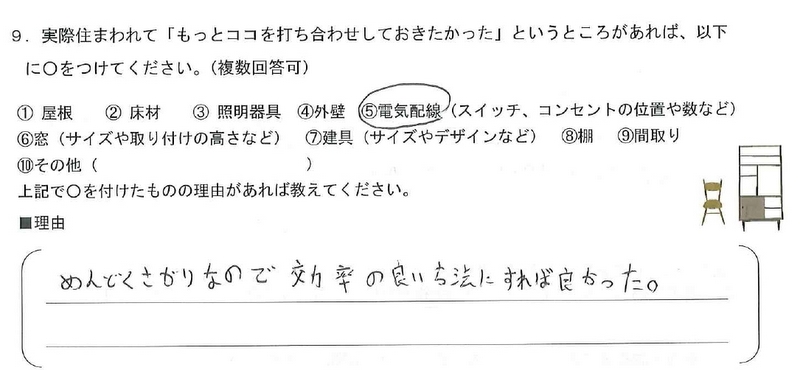 9．実際住まわれて「もっとココを打ち合わせしておきたかった」というところがあれば、以下
に〇をつけてください。（複数回答可）
① 屋根　② 床材　③ 照明器具　④外壁　⑤電気配線（スイッチ、コンセントの位置や数など）
⑥窓（サイズや取り付けの高さなど）　⑦建具（サイズやデザインなど）　⑧棚　⑨間取り
⑩その他（　　　　　　　　　　　　）
上記で〇を付けたものの理由があれば教えてください。
■理由
めんどくさがりなので 効率の良い方法にすれば良かった。